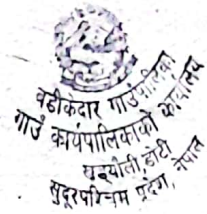 वडीकेदार गाउँपालिका
गाउँ कार्यपालिकाको कार्यालय
डोटी
सुदूरपश्चिम प्रदेश, नेपाल